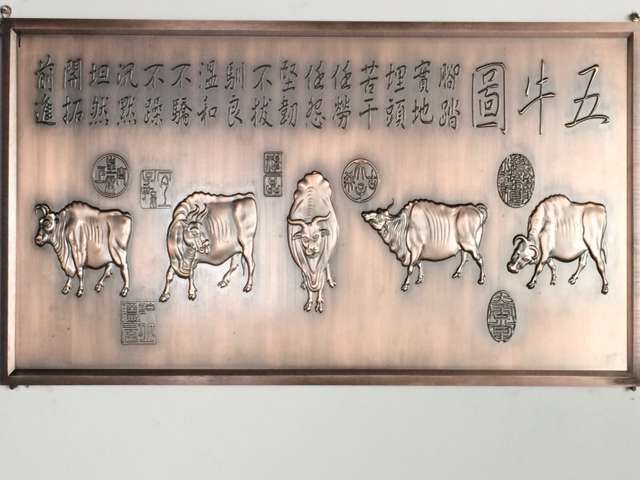 五牛圖
腳踏
實地
埋頭
苦干
任勞
任怨
堅韌
不拔
馴良
溫和
不驕
不躁
沉默
坦然
開拓
前進